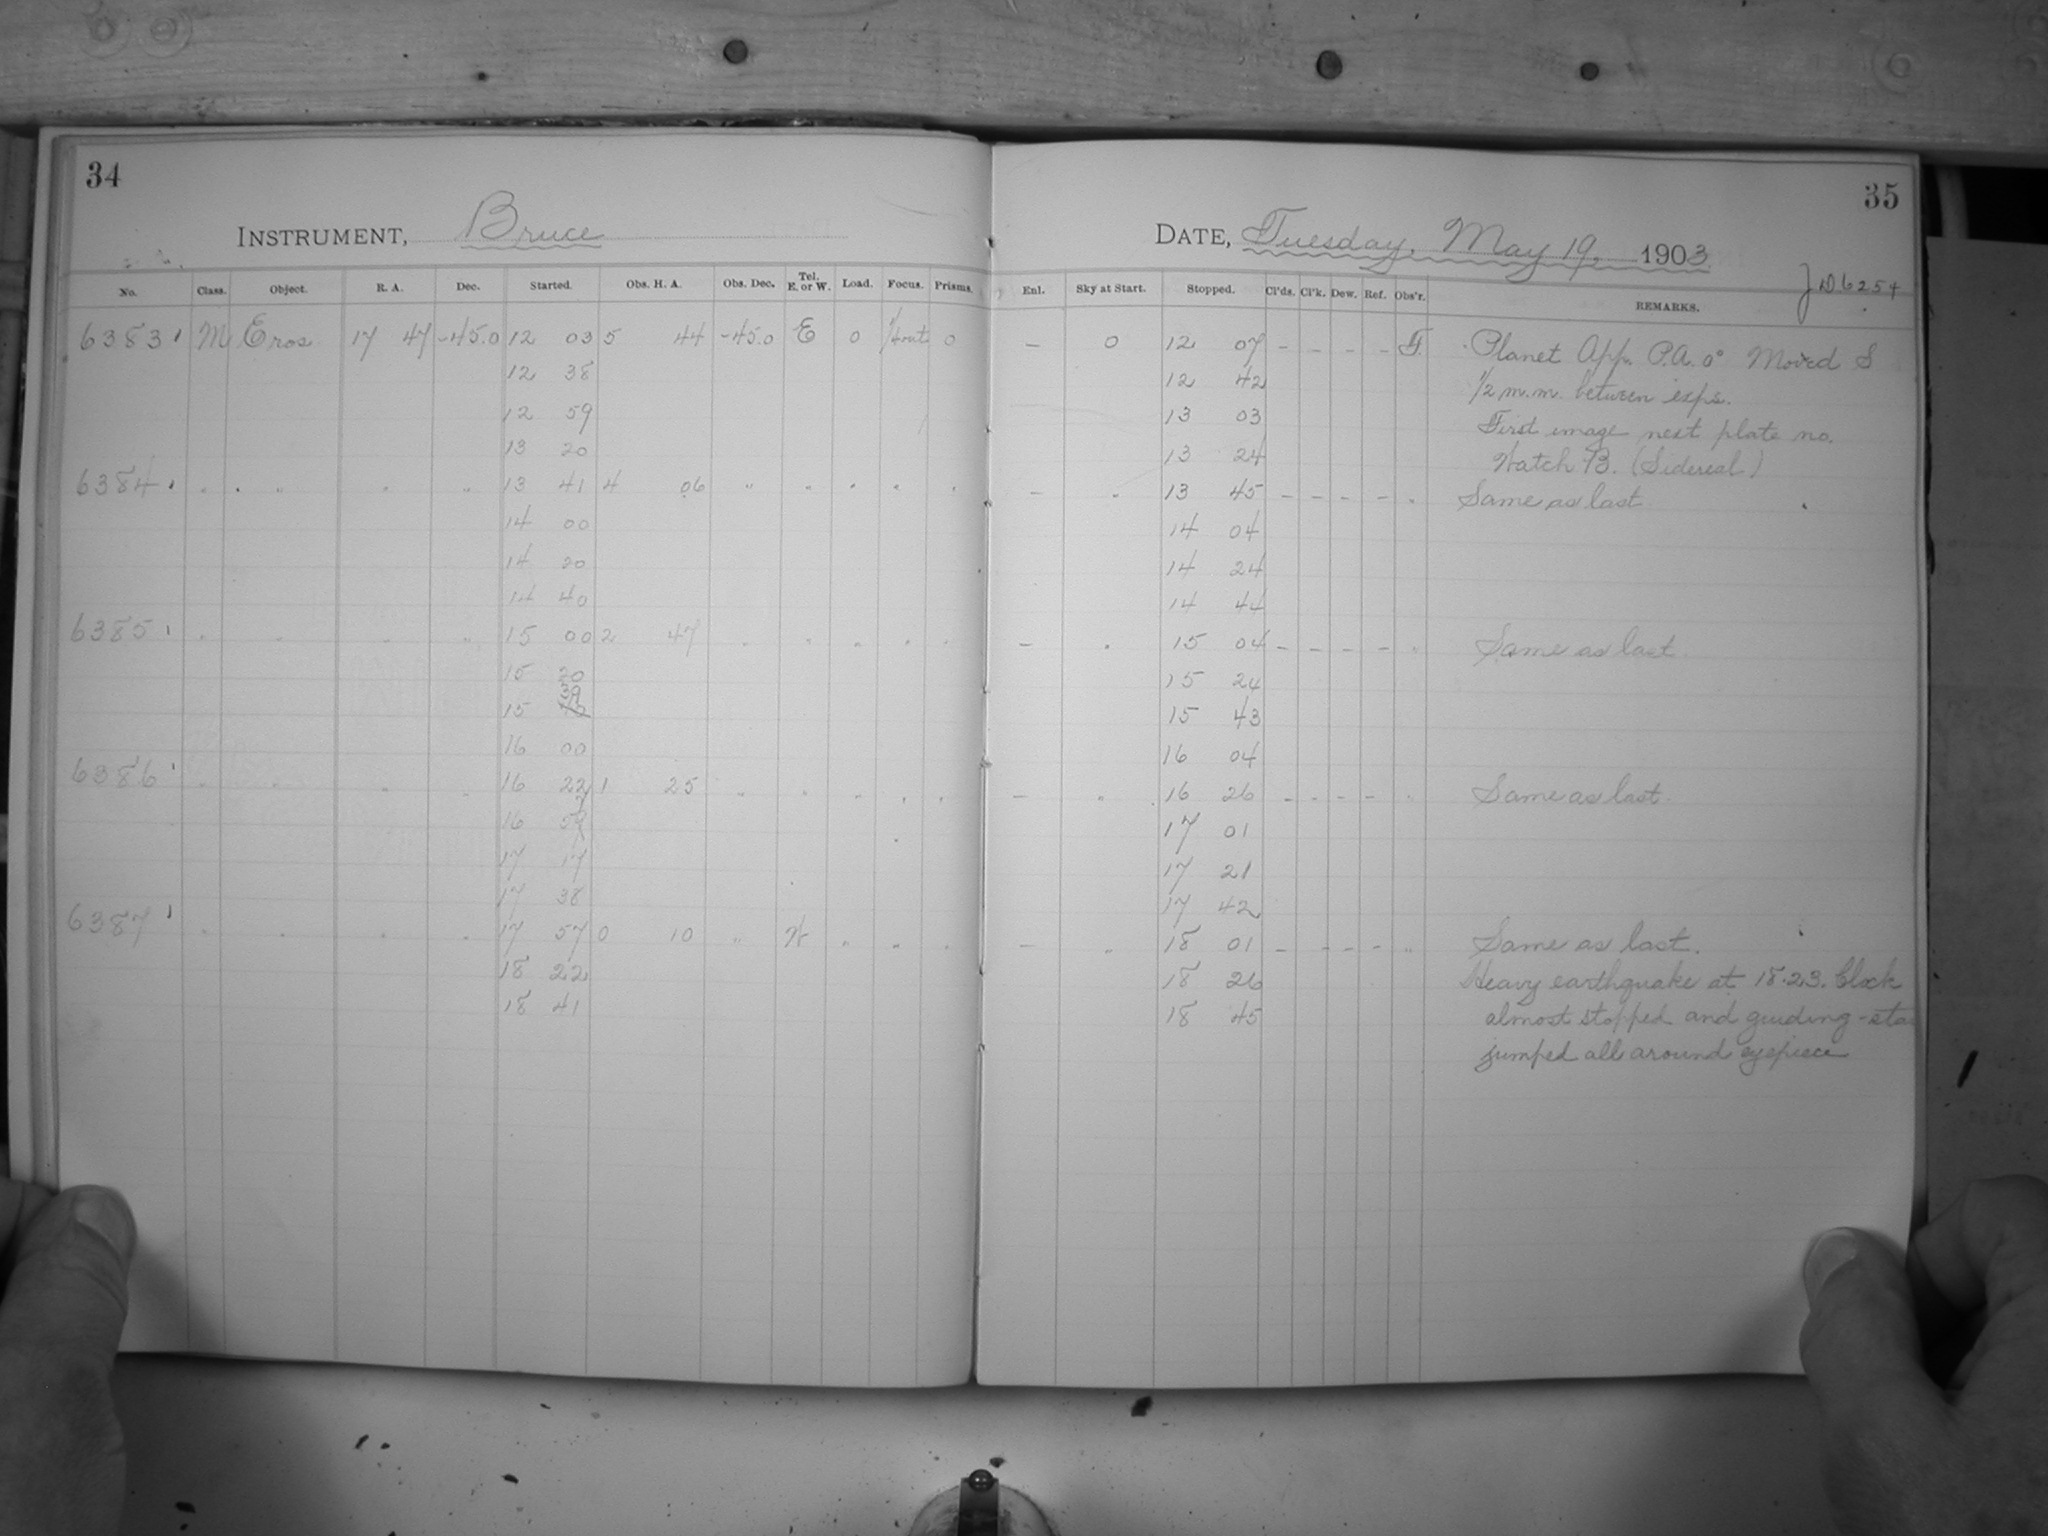 34
INSTRUMENT, Bruce
No. Class. Object. R. A. Dec. Started. Obs. H. A. Obs. Dec. Tel. E. or W. Load. Focus. Prisms.
6383 M Eros 17 47 -45.0 12 03 5 44 -45.0 E 0 1/4 out 0
12 38
12 59
13 20
6384 " " " " " 13 41 4 06 " " " " "
14 00
14 20
14 40
6385 " " " " 15 00 2 47 " " " " "
15 20
15 39
16 00
6386 " " " " 16 22 1 25 " " " " "
16 57
17 17
17 38
6387 " " " " 17 57 0 10 " W " " "
18 22
18 41
35
DATE, Tuesday, May 19, 1903
JD 6254
Enl. Sky at Start. Stopped. Cl'ds. Cl'k. Dew. Ref. Obs'r. REMARKS.
– 0 12 07 – – – – F. Planet App. P.A. 0° Moved S
12 42 1/2 m.m. between exps.
13 03 First image next plate no.
13 24 Watch B. (Sidereal)
– " 13 45 – – – – " Same as last
14 04
14 24
14 44
– " 15 04 – – – – " Same as last.
15 24
15 43
16 04
– " 16 26 – – – – " Same as last.
17 01
17 21
17 42
– " 18 01 – – – – " Same as last.
18 26 Heavy earthquake at 18.23. Clock
18 45 almost stopped and guiding-sta
jumped all around eyepiece